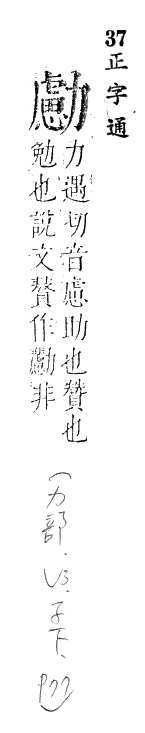 37 正字通
勴
力遇切音慮助也贊也
勉也說文贊作勴非
(力部.V3.子下.P77)